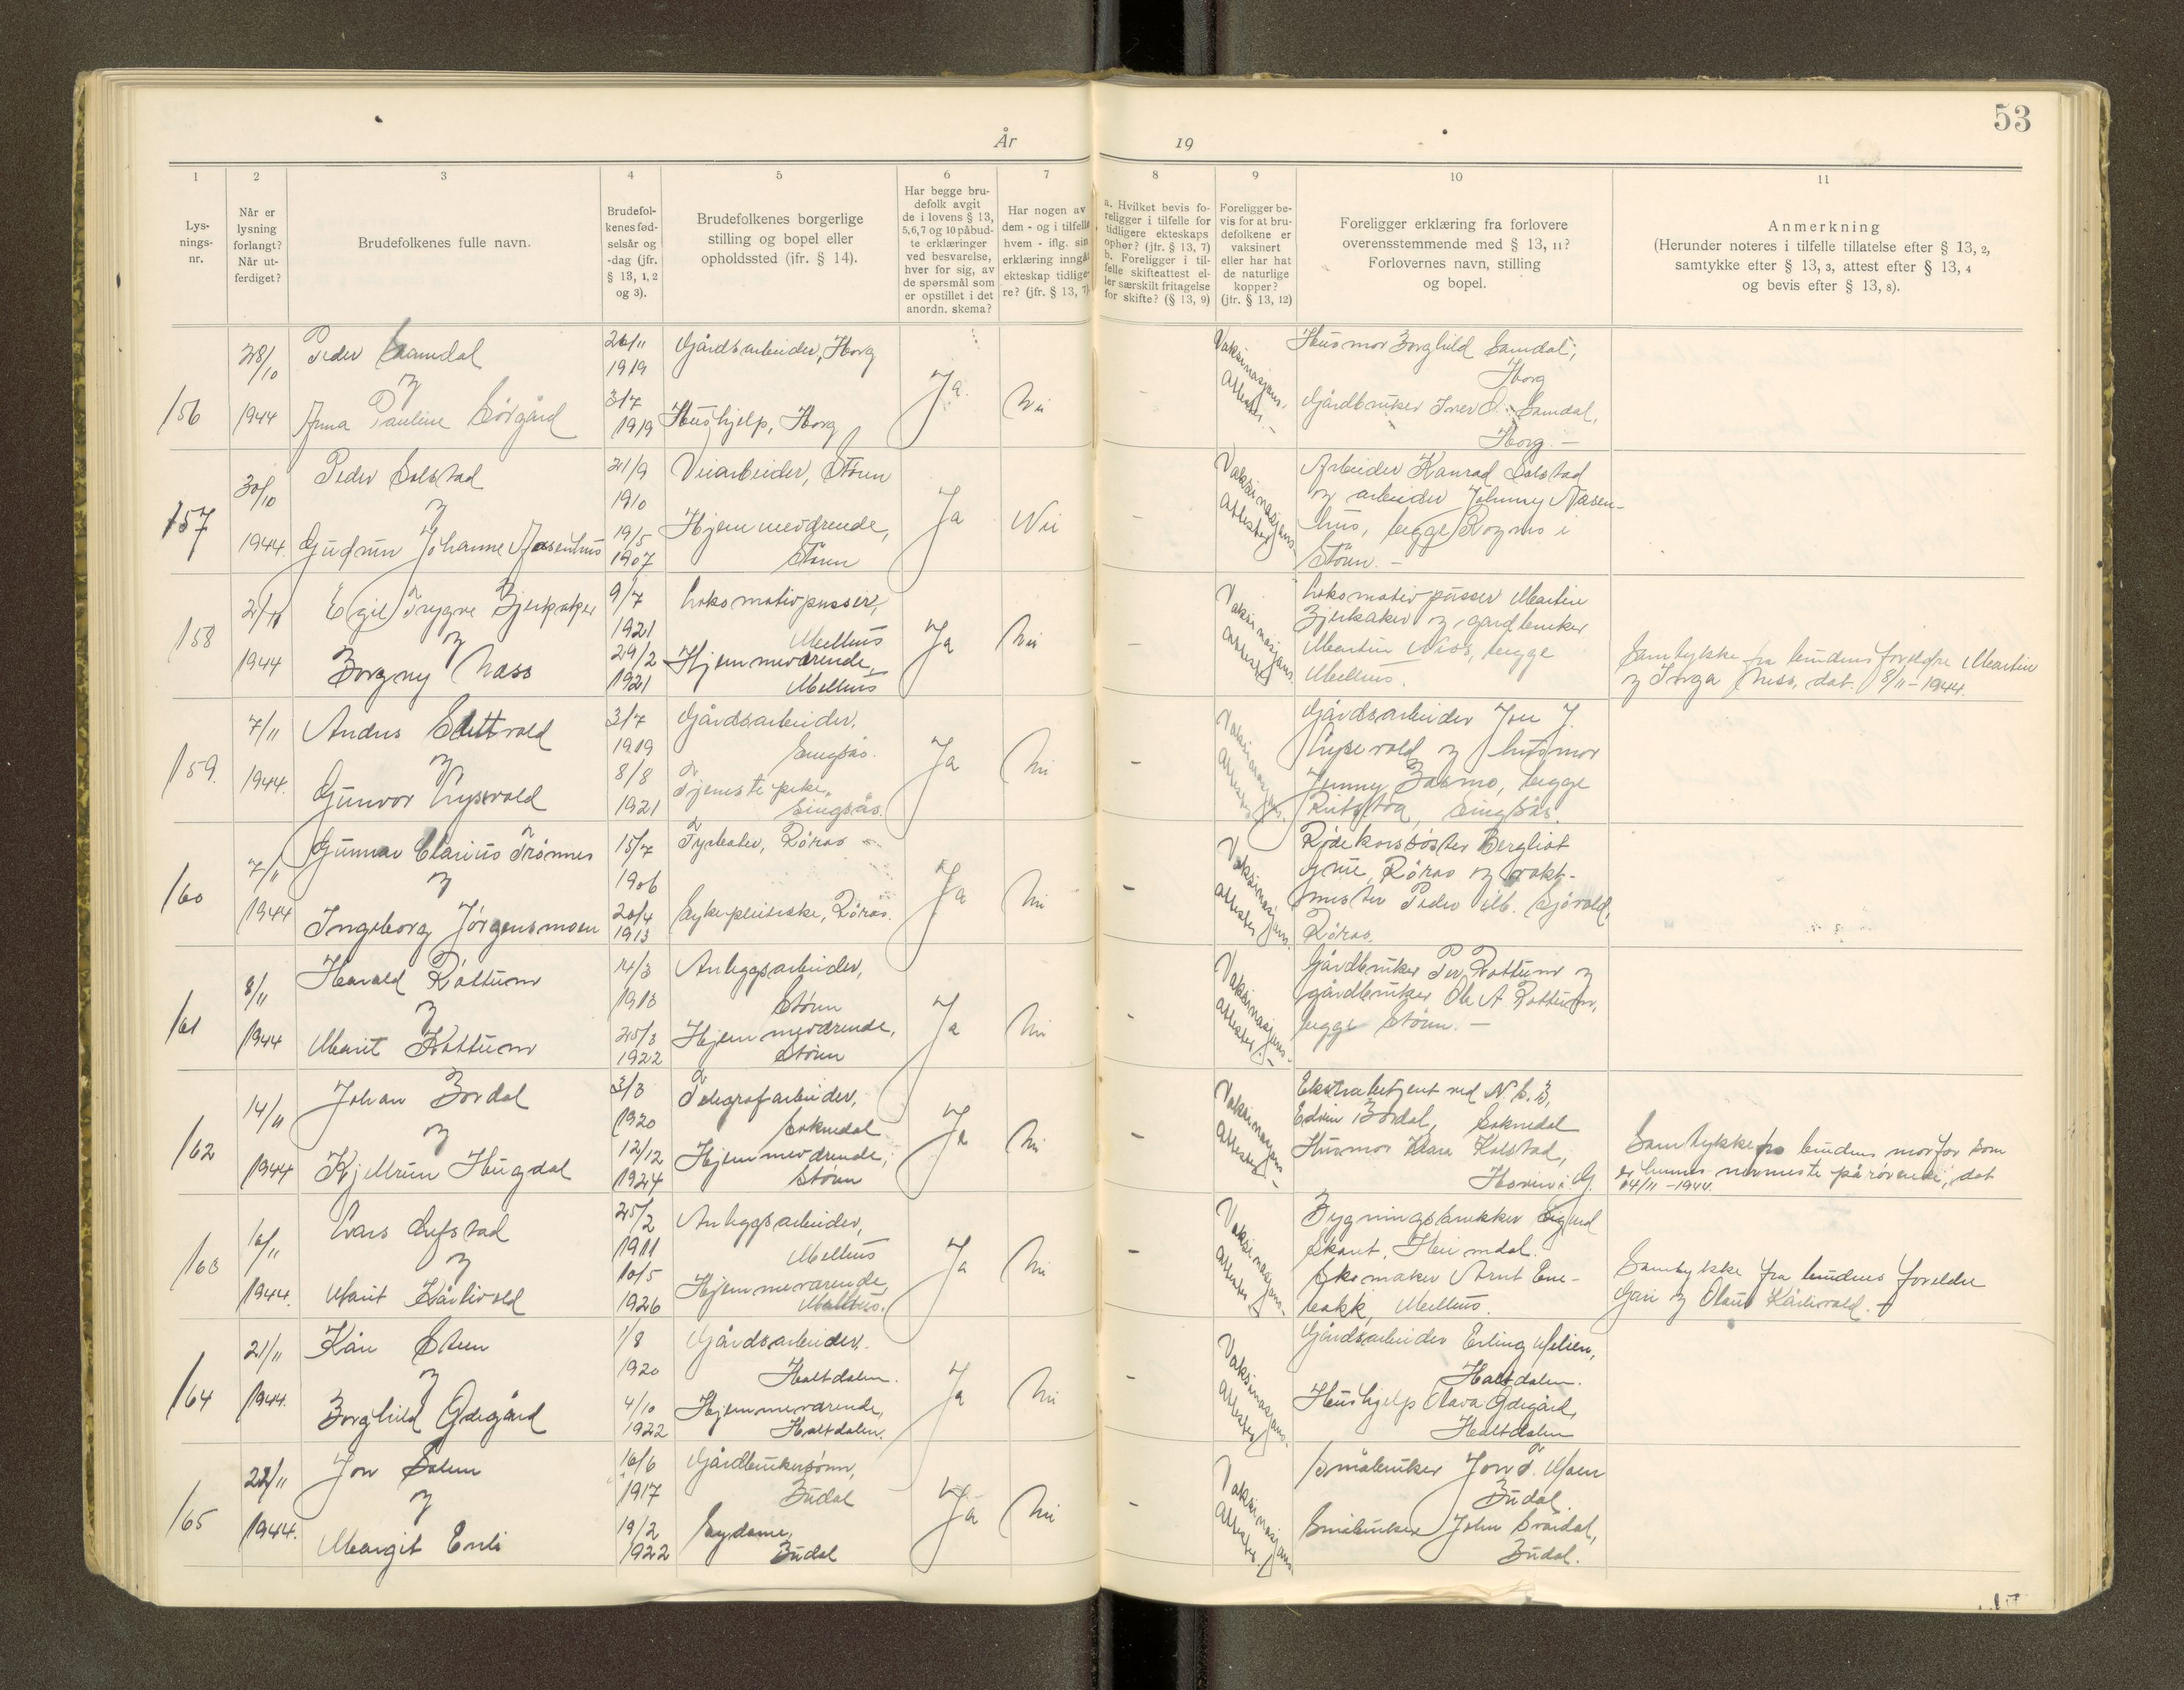 53
År 19
1 2 3 4 5 6 7 8 9 10 11
Lys-
nings-
nr.
Når er
lysning
forlangt?
Når ut-
ferdiget?
Brudefolkenes fulle navn.
Brudefol-
kenes fød-
selsår og
-dag (jfr.
§ 13, 1, 2
og 3).
Brudefolkenes borgerlige
stilling og bopel eller
opholdssted (jfr. § 14).
Har begge bru-
defolk avgit
de i lovens § 13,
5,6,7 og 10 påbud-
te erklæringer
ved besvarelse,
hver for sig, av
de spørsmål som
er opstillet i det
anordn. skema?
Har nogen av
dem - og i tilfelle
hvem - iflg. sin
erklæring inngått
ekteskap tidlige-
re? (jfr. § 13, 7)
a. Hvilket bevis fo-
religger i tilfelle for
tidligere ekteskaps
ophør? (jfr. § 13, 7)
b. Foreligger i til-
felle skifteattest el-
ler særskilt fritagelse
for skifte? (§ 13, 9)
Foreligger be-
vis for at bru-
defolkene er
vaksinert
eller har hat
de naturlige
kopper?
(jfr. § 13, 12)
Foreligger erklæring fra forlovere
overensstemmende med § 13, 11?
Forlovernes navn, stilling
og bopel.
Anmerkning
(Herunder noteres i tilfelle tillatelse efter § 13, 2,
samtykke efter § 13, 3, attest efter § 13, 4
og bevis efter § 13, 8).
156
28/10
1944
Peder Samdal
og
Anna Pauline Sørgård
26/11
1919
3/7
1919
Gårdsarbeider, Horg
Hushjelp, Horg
Ja
Nei
-
Vaksinasjons-
attester.-
Husmor Borghild Samdal,
Horg
Gårdbruker Iver O. Samdal,
Horg. -
157
30/10
1944.
Peder Solstad
og
Gudrun Johanne Aasenhus
21/9
1910
19/5
1907
Veiarbeider, Støren
Hjemmeværende,
Støren
Ja
Nei
-
Vaksinasjons-
attester
Arbeider Konrad Solstad
og arbeider Johnny Aasen-
hus, begge Rognes i
Støren. -
158
2/11
1944
Egil Trygve Bjerkaker
og
Borgny Næss
9/7
1921
29/2
1921
Lokomotivpusser,
Melhus
Hjemmeværende,
Melhus
Ja
Nei
-
Vaksinasjons-
attester
Lokomotivpusser Martin
Bjerkaker og gardbruker
Martin Næss, begge
Melhus.
Samtykke fra brudens foreldre Martin
og Inga Næss, dat. 8/11-1944.
159.
7/11
1944.
Anders Slettvold
og
Gunvor Lysvold
3/7
1919
8/8
1921
Gårdsarbeider.
Singsås.
Tjenestepike,
Singsås.
Ja
Nei
-
Vaksinasjons-
attester
Gårdsarbeider Jon J.
Lysvold og husmor
Jenny Bosmo, begge
Singsås.
160
7/11
1944
Gunnar Clarius Trønnes
og
Ingeborg Jørgensmoen
15/7
1906
20/4
1913
Fyrbøter, Røros
Sykepleierske, Røros.
Ja
Nei
-
Vaksinasjons-
attester
Røde korssøster Bergliot
Røros og vakt-
mester Peder Sjøvold,
Røros.
161
8/11
1944
Harald Rottum
og
Marit Rottum
14/3
1913
25/3
1922
Anleggsarbeider,
Støren
Hjemmeværende,
Støren
Ja
Nei
-
Vaksinasjons-
attester.-
Gårdbruker Per Rottum og
gårdbruker Ole A Rottum,
begge Støren. -
162
14/11
1944
Johan Bordal
og
Kjellrun Hugdal
3/3
1920
12/12
1924
Telegrafarbeider,
Soknedal
Hjemmeværende,
Støren
Ja
Nei
-
Vaksinasjons-
attester -
Ekstrabetjent ved N.S.B.
Edvin Bordal, Soknedal
Husmor Klara Kolstad,
Hovin i G.
Samtykke fra brudens morfar som
er hennes nærmeste pårørende, dat
14/11-1944.
163
16/11
1944.
Lars Lefstad
og
Marit Kårlivold
25/2
1911
10/5
1926
Anleggsarbeider,
Melhus
Hjemmeværende
Melhus.
Ja
Nei
-
Vaksinasjons-
attester
Bygningssnekker Sigurd
Skaret, Heimdal.
Skomaker Arnt Ene-
bakk, Melhus.
Samtykke fra brudens foreldre
Guri og Olaus Kårlivold. -
164
21/11
1944.
Kåre Steen
og
Borghild Ødegård
1/8
1920
4/10
1922
Gårdsarbeider.
Haltdalen.
Hjemmeværende,
Haltdalen.
Ja
Nei
-
Vaksinasjons-
attester
Gårdsarbeider Erling Melien,
Haltdalen.
Hushjelp Olava Ødegård,
Haltdalen
165
22/11
1944.
Jon Solem
og
Margit Enli
16/6
1917
19/2
1922
Gårdbrukersønn,
Budal
Sydame,
Budal
Ja
Nei
-
Vaksinasjons-
attester.
Småbruker Jon T. Moen
Budal.
Småbruker John Svardal,
Budal.